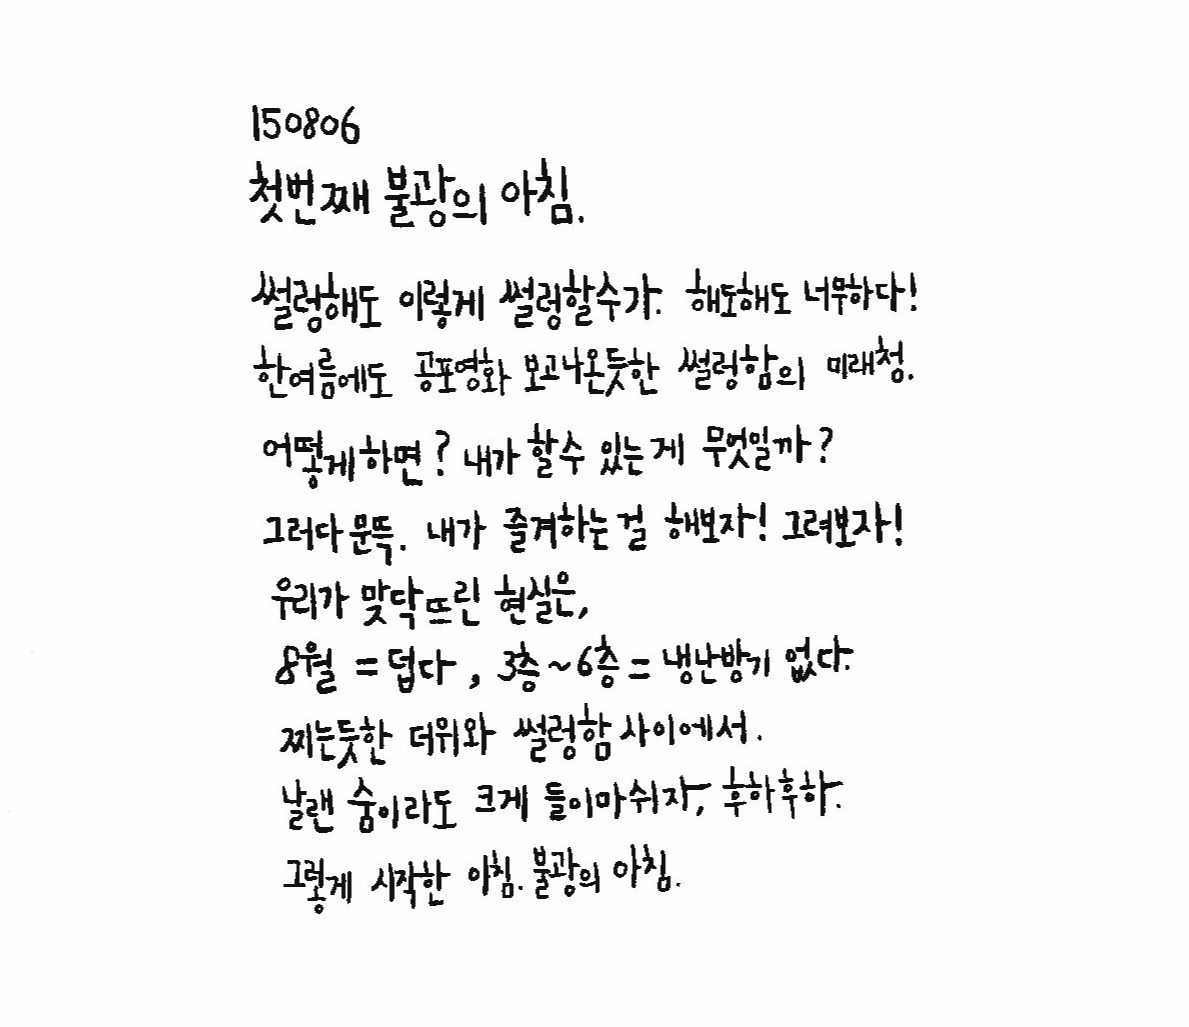 150806
첫번째 불광의 아침.
썰렁해도 이렇게 썰렁할수가. 해도해도 너무하다!
한여름에도 공포영화 보고나온듯한 썰렁함의 미래청.
어떻게하면? 내가 할수 있는게 무엇일까?
그러다 문뜩. 내가 즐겨하는 걸 해보자! 그려보자!
우리가 맞닥뜨린 현실은,
8월 = 덥다, 3층~6층 = 냉난방기 없다.
찌는듯한 더위와 썰렁함 사이에서.
날랜 숨이라도 크게 들이마쉬자, 후하후하.
그렇게 시작한 아침. 불광의 아침.